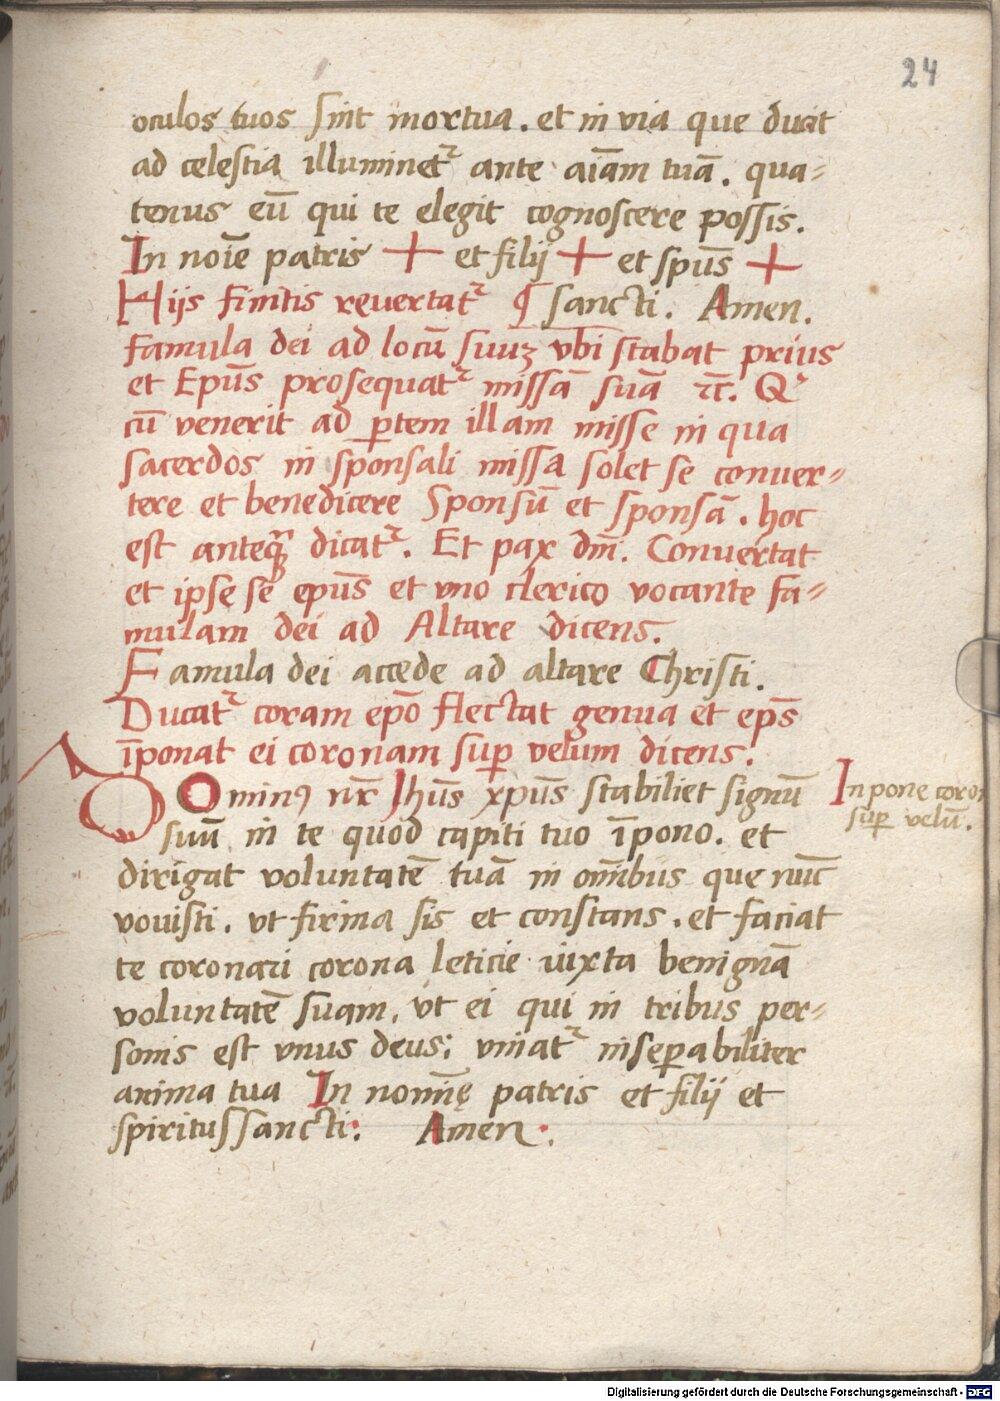 24
oculos tuos sint mortua. et in via que ducit
ad celestia illuminet᷑ ante aīam tuā. qua-
tenus eū qui te elegit cognoscere possis.
In noīe patris + et filij + et spūs +
Hijs finitis revertat᷑ ¶ sancti. Amen.
famula dei ad locū suuꝫ vbi stabat prius
et Epūs prosequat᷑ missā suā ⁊c̄. Qᷓ
cū venerit ad ꝑtem illam misse in qua
sacerdos in sponsali missa solet se conver-
tere et benedicere Sponsū et sponsā. hoc
est anteqᷓ dicat᷑. Et pax dm̄. Convertat
et ipse se epūs et vno clerico vocante fa-
mulam dei ad Altare dicens.
Famula dei accede ad altare Christi.
Ducat᷑ coram epō flectat genua et ep̄s
īponat ei coronam suꝑ velum dicens.
Dominꝰ nr̄ Jhūs xpūs stabiliet signū
suū in te quod capiti tuo īpono. et
dirigat voluntatē tuā in om̄ibus que nūc
vovisti. vt firma sis et constans. et faciat
te coronari corona leticie iuxta benignā
voluntatē suam, vt ei qui in tribus per-
sonis est vnus deus; vniat᷑ inseꝑabiliter
anima tua In nomīe patris et filij et
spiritus sancti. Amen.
In pone coron
suꝑ velū.
Digitalisierung gefördert durch die Deutsche Forschungsgemeinschaft - DFG